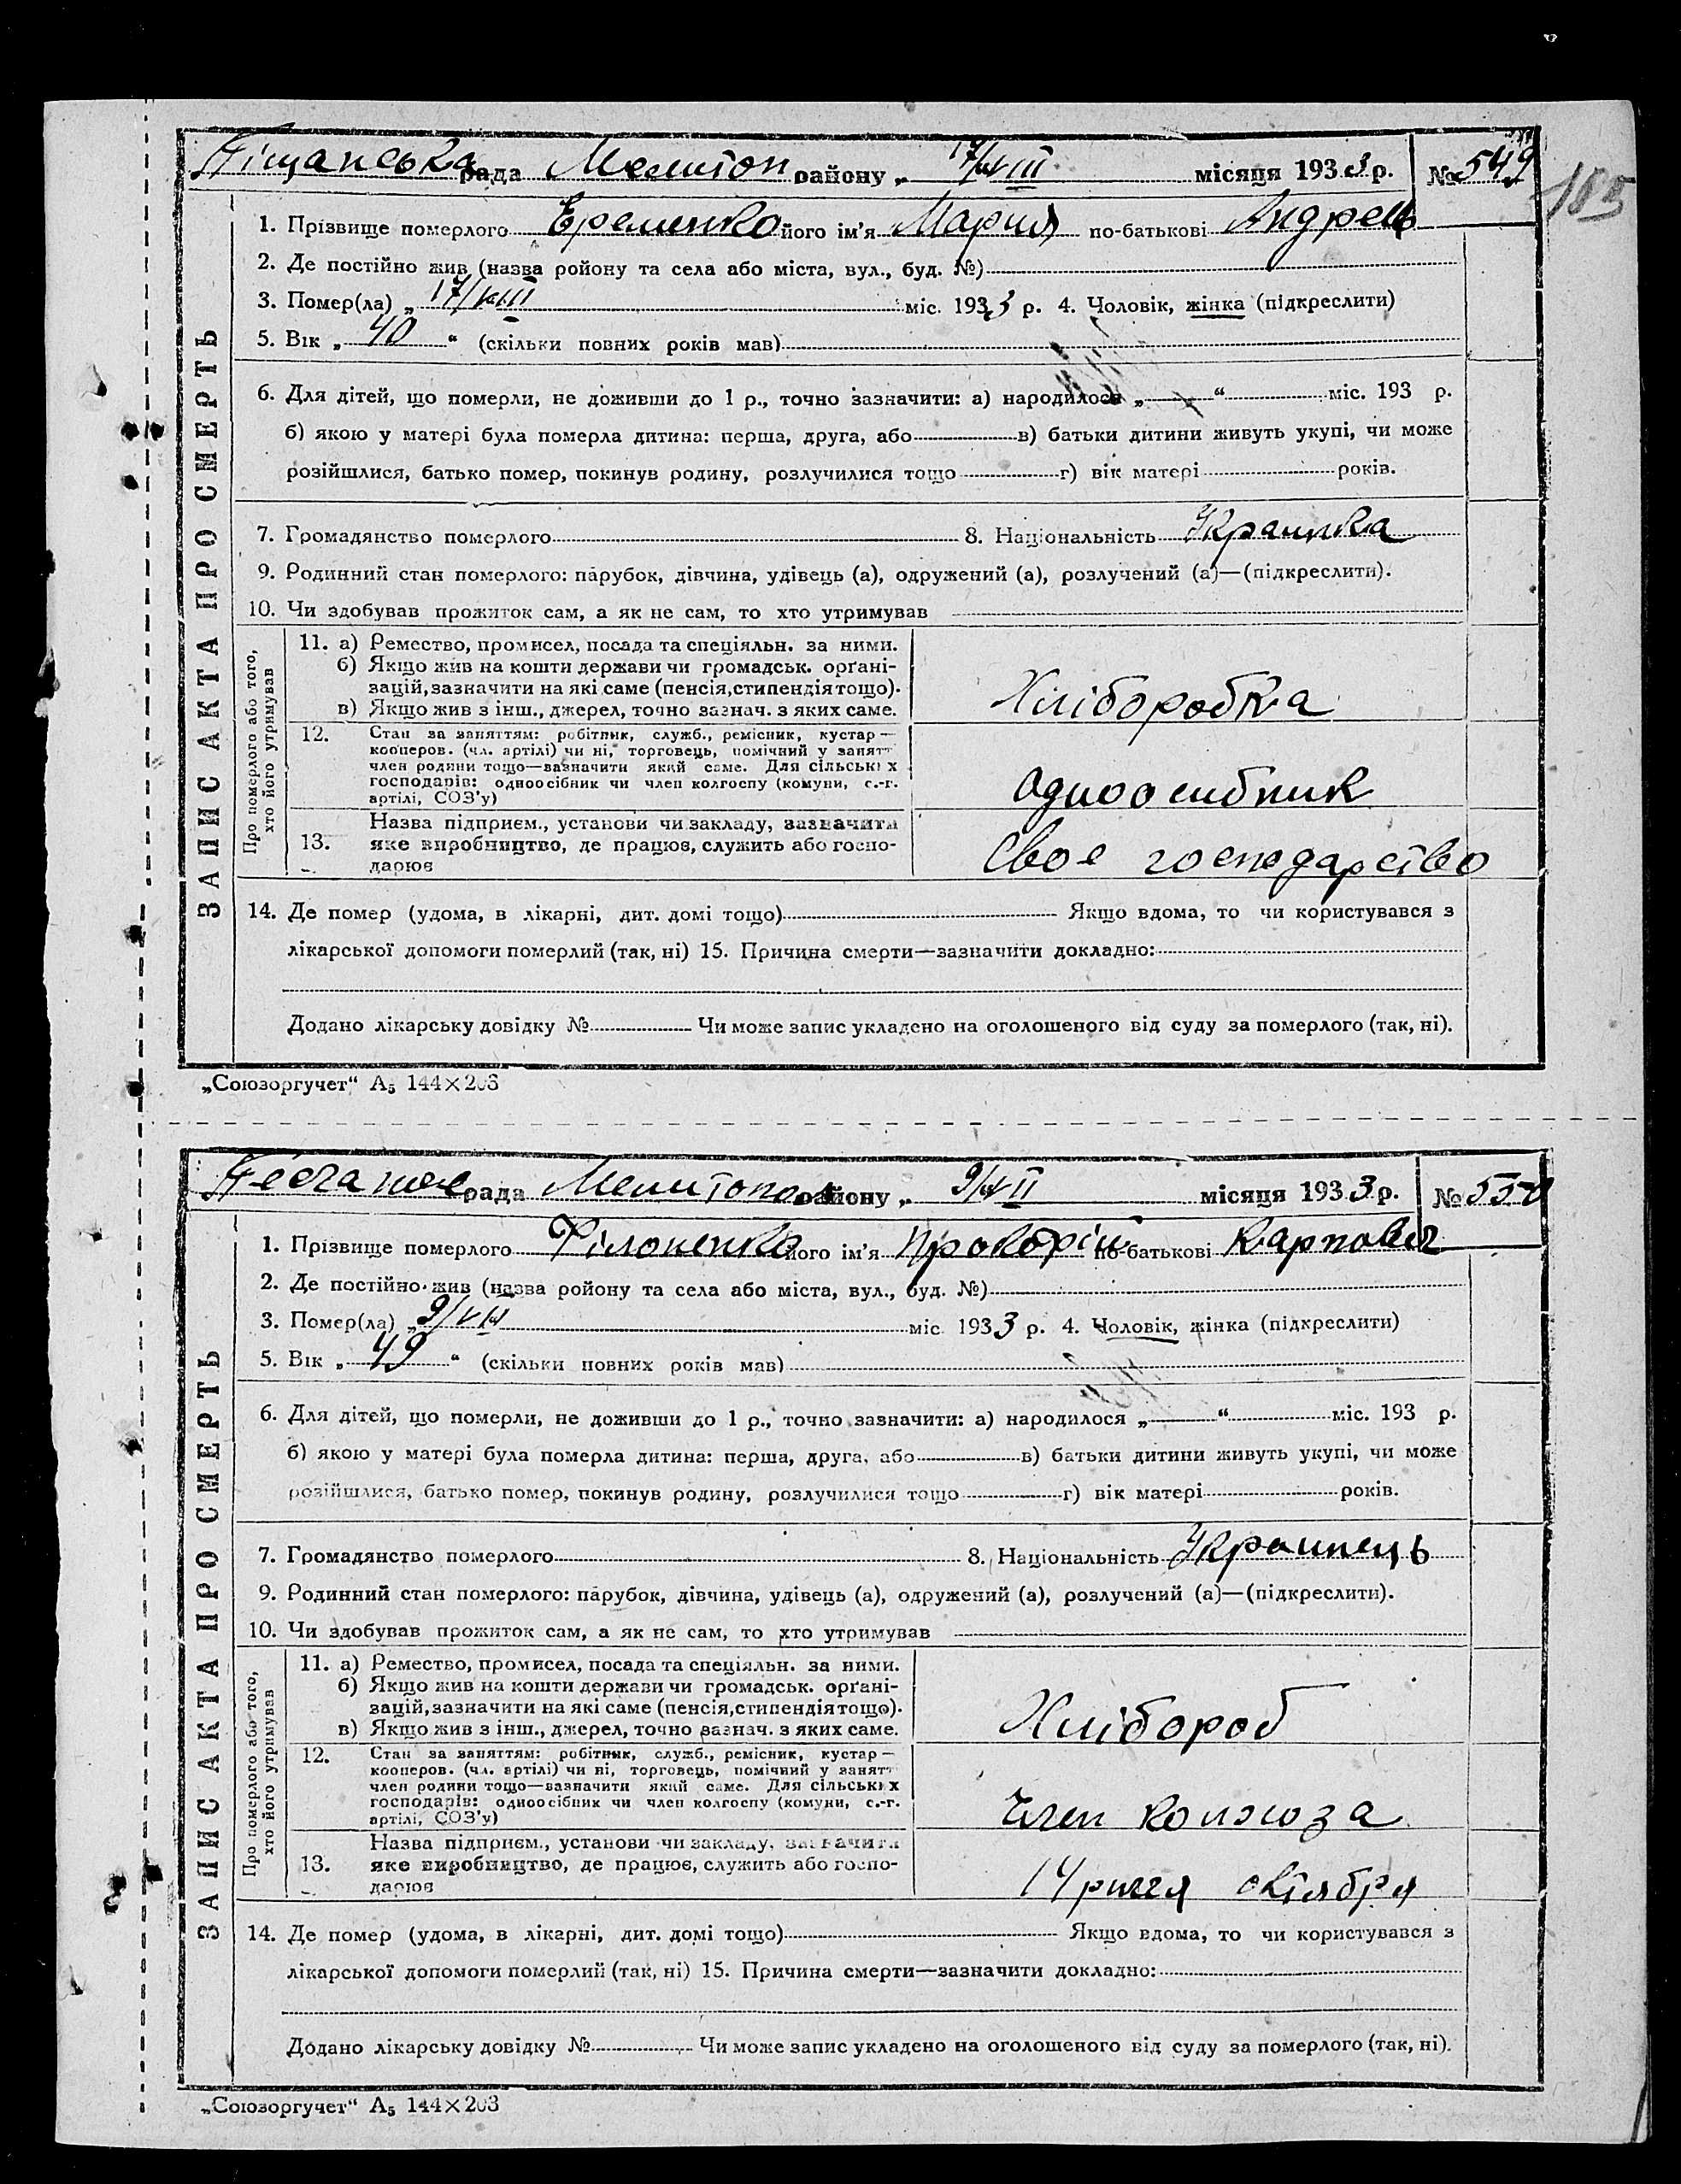 Піщанська рада Мелітоп району „ 17/VIII місяця 1933 р. № 549
185
1. Прізвище померлого Еременко його ім'я Мария по-батькові Андреев
2. Де постійно жив (назва ройону та села або міста, вул., буд. №)
3. Помер(ла) „ 17/VIII міс. 1933 р. 4. Чоловік, жінка (підкреслити)
5. Вік „ 40 “ (скільки повних років мав)
6. Для дітей, що померли, не доживши до 1 р., точно зазначити: а) народилося „ “ міс. 193 р.
б) якою у матері була померла дитина: перша, друга, або в) батьки дитини живуть укупі, чи може
розійшлися, батько помер, покинув родину, розлучилися тощо г) вік матері років.
7. Громадянство померлого 8. Національність Украинка
9. Родинний стан померлого: парубок, дівчина, удівець (а), одружений (а), розлучений (а)—(підкреслити).
10. Чи здобував прожиток сам, а як не сам, то хто утримував
ЗАПИС АКТА ПРО СМЕРТЬ
Про померлого або того,
хто його утримував
11. а) Ремество, промисел, посада та спеціяльн. за ними.
б) Якщо жив на кошти держави чи громадськ. орґані-
зацій, зазначити на які саме (пенсія, стипендія тощо).
в) Якщо жив з інш., джерел, точно зазнач. з яких саме.
Хліборобка
12. Стан за заняттям: робітник, служб., ремісник, кустар—
кооперов. (чл. артілі) чи ні, торговець, помічний у занятт
член родини тощо—зазначити який саме. Для сільських
господарів: одноосібник чи член колгоспу (комуни, с.-г.
артілі, СОЗ'у)
одноосибник
13. Назва підприєм., установи чи закладу, зазначити
яке виробництво, де працює, служить або госпо-
дарює
Своє господарство
14. Де помер (удома, в лікарні, дит. домі тощо) Якщо вдома, то чи користувався з
лікарської допомоги померлий (так, ні) 15. Причина смерти—зазначити докладно:
Додано лікарську довідку № Чи може запис укладено на оголошеного від суду за померлого (так, ні).
„Союзоргучет“ А5 144×203
рада Мелитопол району „ 9/VII місяця 1933 р. № 550
1. Прізвище померлого Філоненко його ім'я Прокофій по-батькові Карпович
2. Де постійно жив (назва ройону та села або міста, вул., буд. №)
3. Помер(ла) „ міс 1933 р. 4. Чоловік, жінка (підкреслити)
5. Вік „ 49 “ (скільки повних років мав)
6. Для дітей, що померли, не доживши до 1 р., точно зазначити: а) народилося „ “ міс. 193 р.
б) якою у матері була померла дитина: перша, друга, або в) батьки дитини живуть укупі, чи може
розійшлися, батько помер, покинув родину, розлучилися тощо г) вік матері років.
7. Громадянство померлого 8. Національність Украинець
9. Родинний стан померлого: парубок, дівчина, удівець (а), одружений (а), розлучений (а)—(підкреслити).
10. Чи здобував прожиток сам, а як не сам, то хто утримував
ЗАПИС АКТА ПРО СМЕРТЬ
Про померлого або того,
хто його утримував
11. а) Ремество, промисел, посада та спеціяльн. за ними.
б) Якщо жив на кошти держави чи громадськ. орґані-
зацій, зазначити на які саме (пенсія, стипендія тощо).
в) Якщо жив з інш., джерел, точно зазнач. з яких саме.
Хлібороб
12. Стан за заняттям: робітник, служб., ремісник, кустар—
кооперов. (чл. артілі) чи ні, торговець, помічний у занятт
член родини тощо—зазначити який саме. Для сільських
господарів: одноосібник чи член колгоспу (комуни, с.-г.
артілі, СОЗ'у)
член колхоза
13. Назва підприєм., установи чи закладу, зазначити
яке виробництво, де працює, служить або госпо-
дарює
14 октября
14. Де помер (удома, в лікарні, дит. домі тощо) Якщо вдома, то чи користувався з
лікарської допомоги померлий (так, ні) 15. Причина смерти—зазначити докладно:
Додано лікарську довідку № Чи може запис укладено на оголошеного від суду за померлого (так, ні).
„Союзоргучет“ А5 144×203